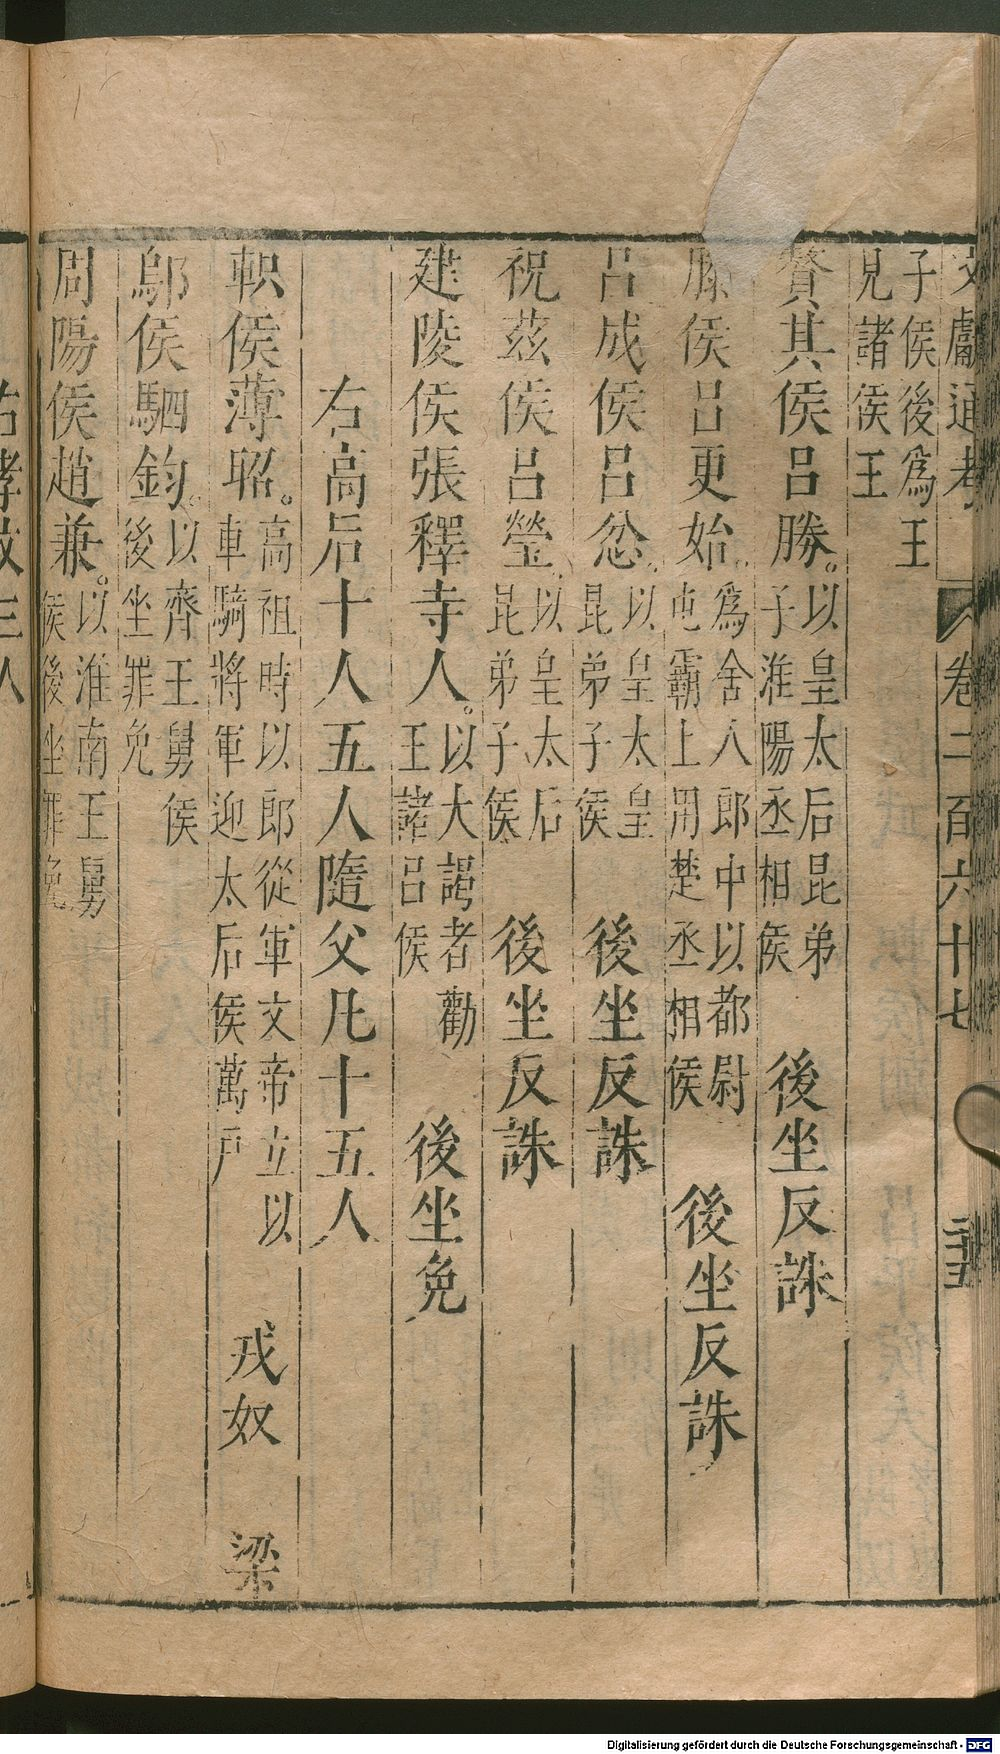 文獻通考 卷二百六十七 三十五
子侯後爲王
見諸侯王
贅其侯呂勝。以皇太后昆弟子淮陽丞相侯 後坐反誅
滕侯呂更始。爲舍人郎中以都尉屯霸上用楚丞相侯 後坐反誅
呂成侯呂忿。以皇太皇昆弟子侯 後坐反誅
祝茲侯呂瑩。以皇太后昆弟子侯 後坐反誅
建陵侯張釋寺人。以大謁者勸王諸呂侯 後坐免
右高后十人五人隨父凡十五人
軹侯薄昭。高祖時以郎從軍文帝立以車騎將軍迎太后侯萬戸 戎奴 梁
鄔侯駟鈞。以齊王舅侯後坐罪免
周陽侯趙兼。以淮南王舅侯後坐罪免
Digitalisierung gefördert durch die Deutsche Forschungsgemeinschaft - DFG